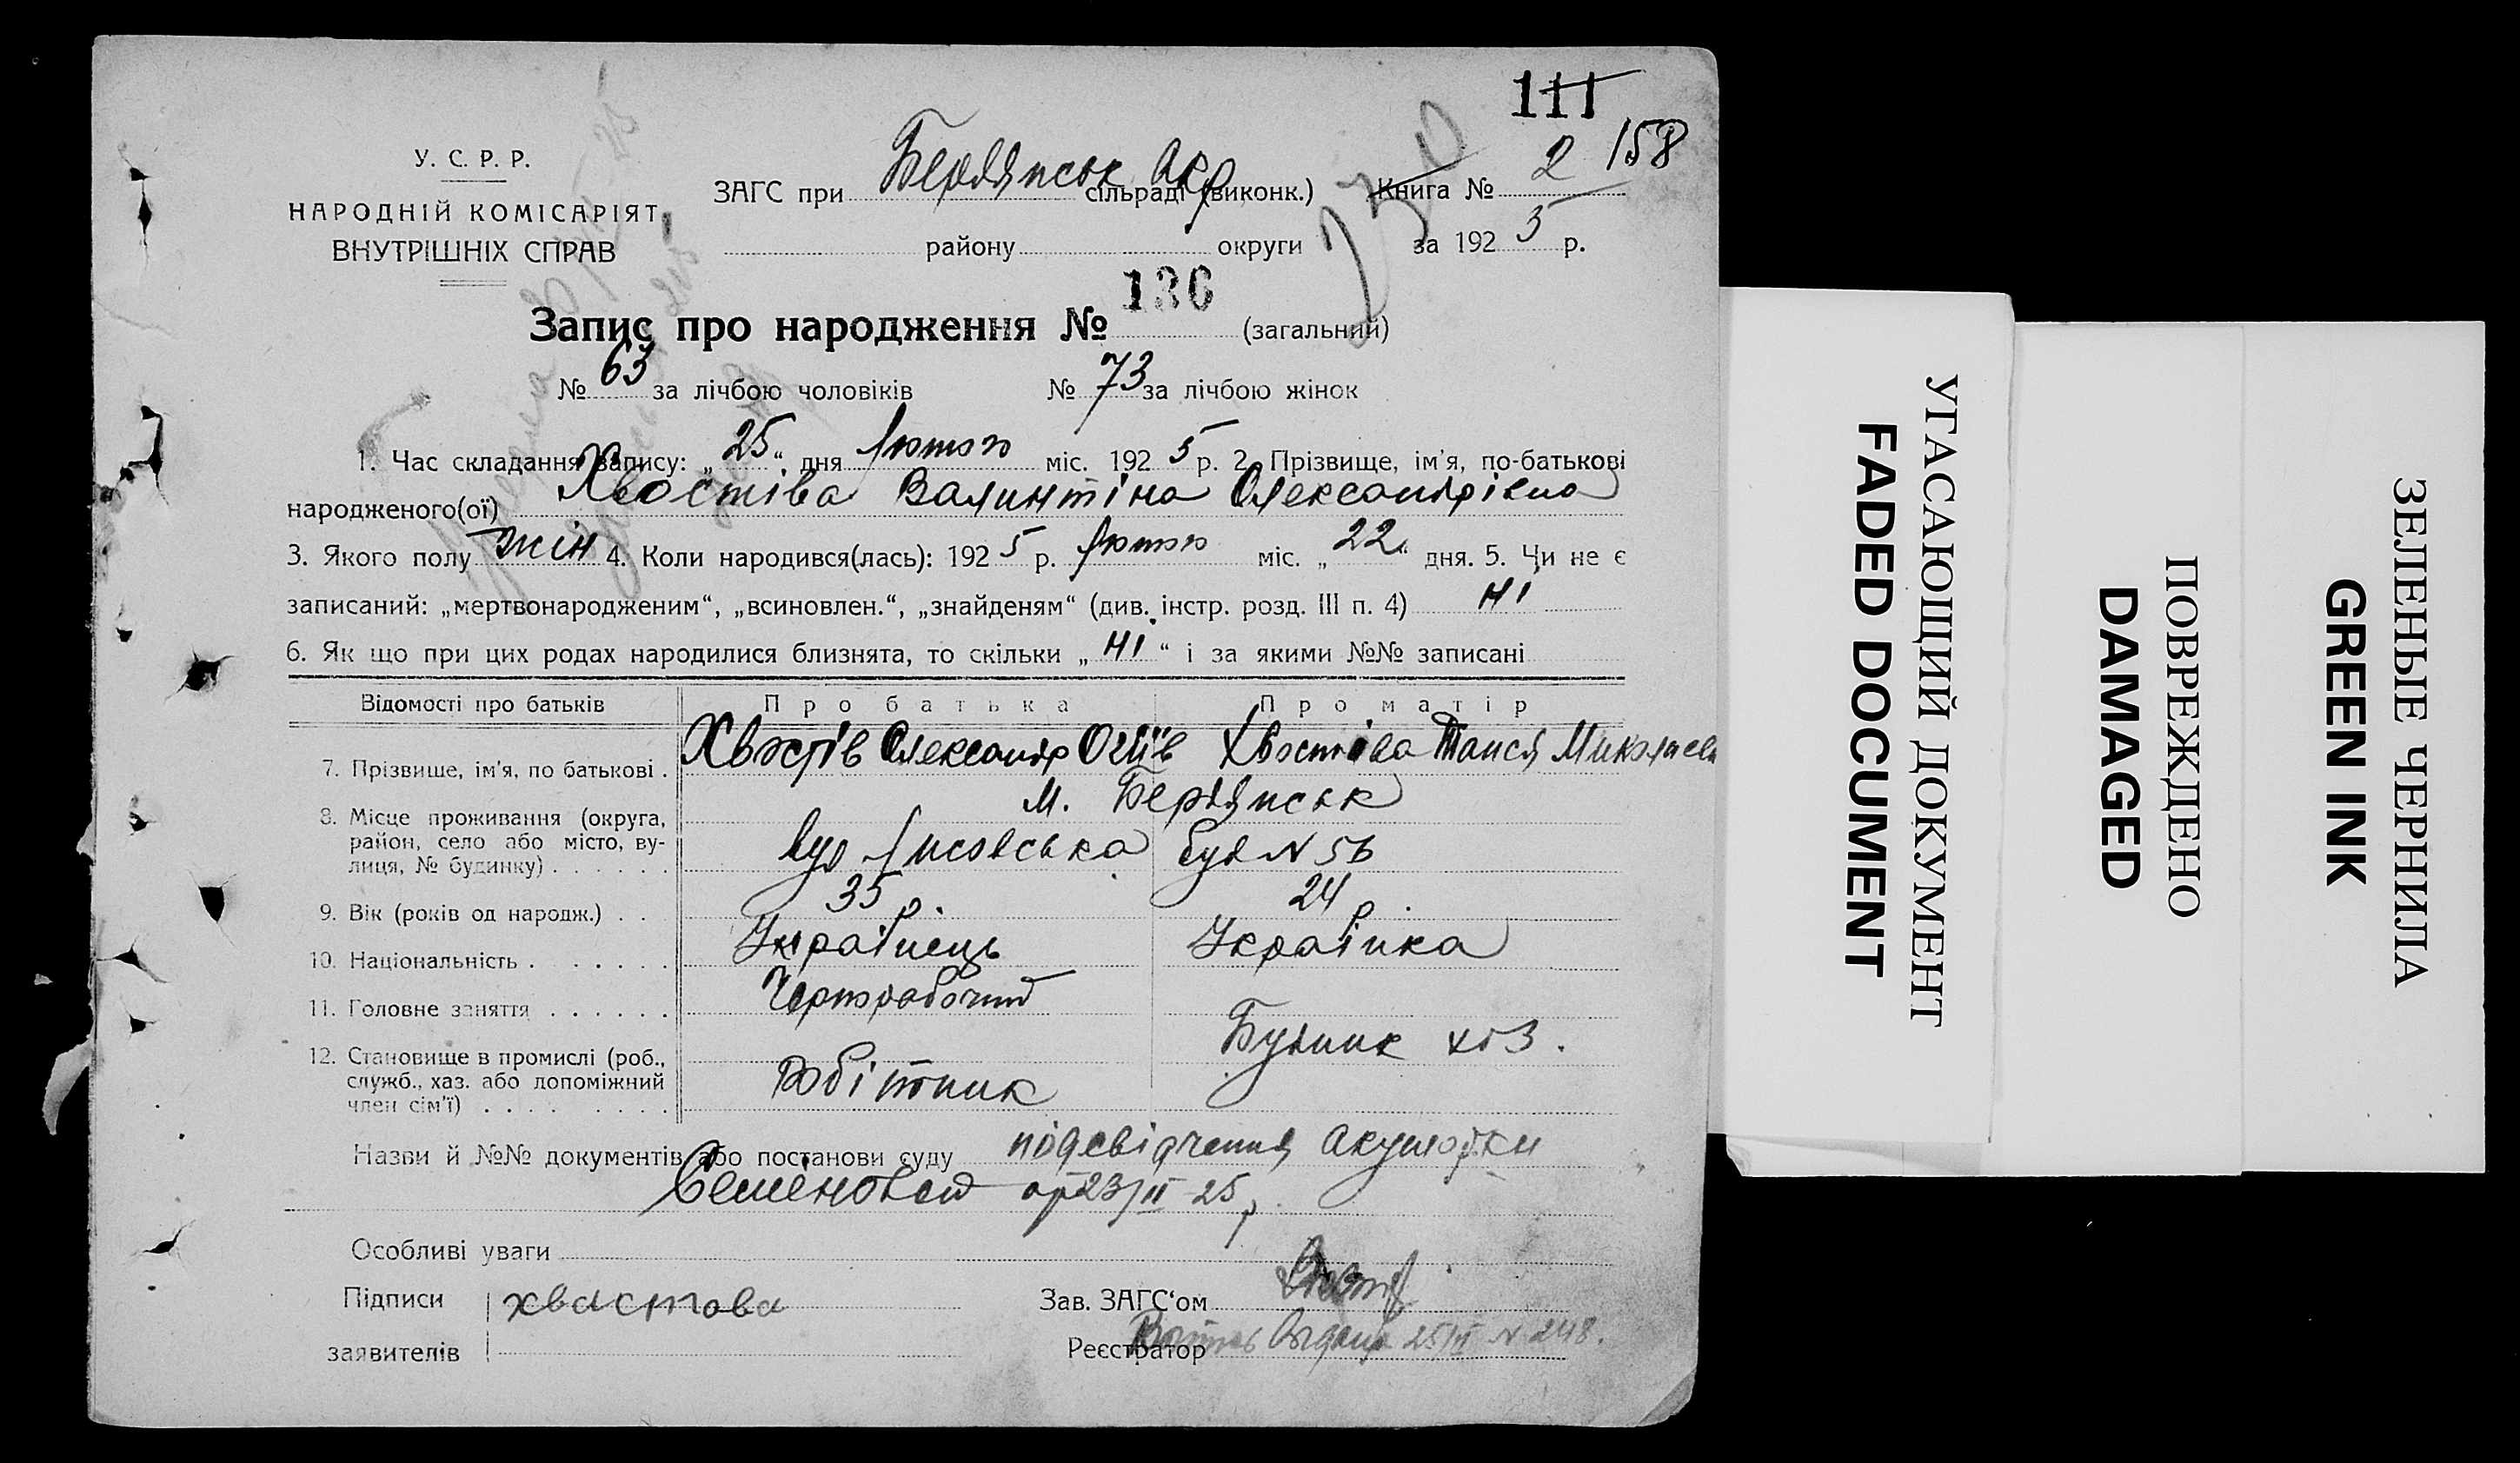 111
158
У. С. Р. Р.
НАРОДНІЙ КОМІСАРІЯТ
ВНУТРІШНІХ СПРАВ
ЗАГС при Бердянськ Окр сільраді (виконк.) Книга № 2
району округи за 192 5 р.
Запис про народження № 136 (загальний)
№ 63 за лічбою чоловіків № 73 за лічбою жінок
1. Час складання запису: „ 25 “ дня лютого міс. 192 5 р. 2. Прізвище, ім'я, по-батькові
народженого(ої) Хвостіва Валинтіна Олександрівна
3. Якого полу жін 4. Коли народився(лась): 192 5 р. лютого міс. „ 22 “ дня. 5. Чи не є
записаний: „мертвонародженим“, „всиновлен.“, „знайденям“ (див. інстр. розд. III п. 4) ні
6. Як що при цих родах народилися близнята, то скільки „ ні “ і за якими №№ записані
Відомості про батьків Про батька Про матір
7. Прізвище, ім'я, по батькові . Хвостів Олександр Хвостіва Таися Миколаевн
м. Бердянськ
8. Місце проживання (округа,
район, село або місто, ву-
лиця, № будинку) . . . . . . вул Лисовська буд N 56
9. Вік (років од народж.) . . 35 р. 24 р.
10. Національність . . . . . . Українець Українка
11. Головне заняття . . . . . . Чорнорабочий
Будинк хоз.
12. Становище в промислі (роб.,
служб., хаз. або допоміжний
член сім'ї) . . . . . . . . Робітник
Назви й №№ документів або постанови суду подсвідчення акушорки
Семёновой от 23/II 25 р.
Особливі уваги
Підписи хвастова Зав. ЗАГС‘ом
заявителів Реєстратор 25/II N 248.
УГАСАЮЩИЙ ДОКУМЕНТ
FADED DOCUMENT
ПОВРЕЖДЕНО
DAMAGED
ЗЕЛЕНЫЕ ЧЕРНИЛА
GREEN INK